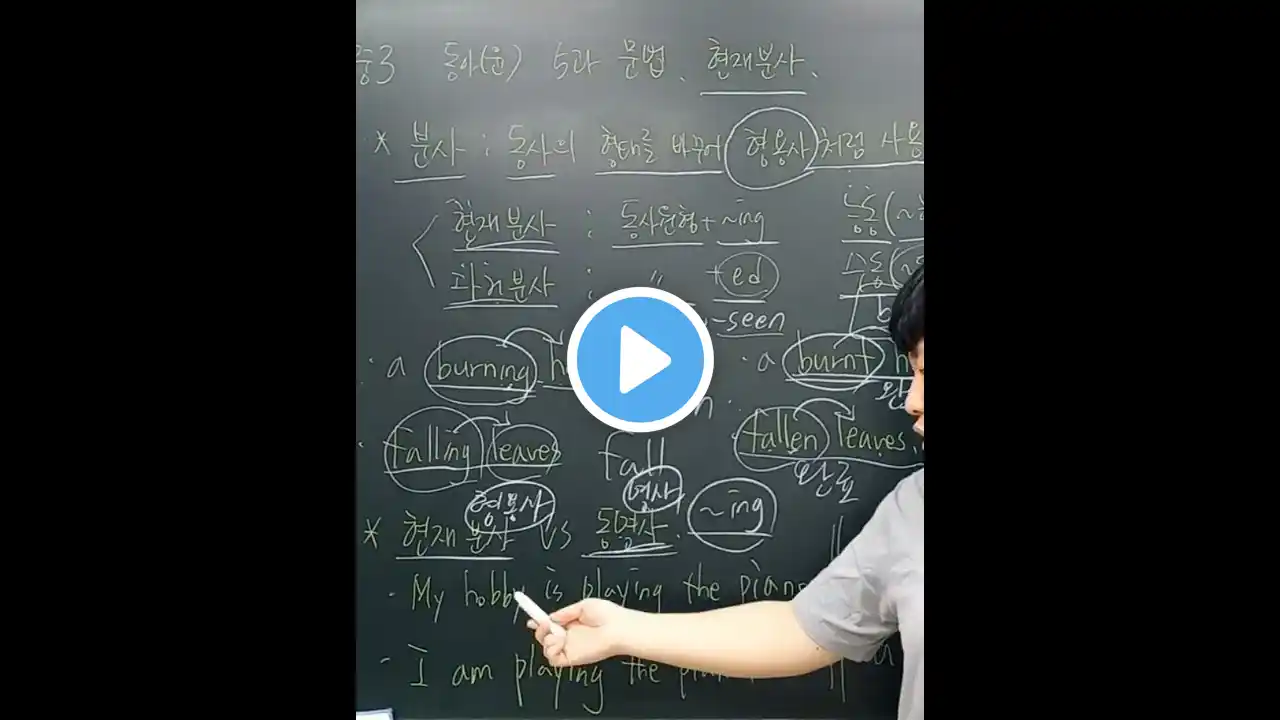 중3 동아(윤) 5과 문법. 현재분사.
* 분사 : 동사의 형태를 바꾸어 형용사처럼 사용
현재분사 : 동사원형 + ~ing 능동(~
과거분사 : 〃 + ed 수동(~
-seen b
· a burning h · a burnt h
n
· falling leaves fall · fallen leaves
완료
형용사 명사
* 현재분사 vs 동명사. ~ing
- My hobby is playing the piano
- I am playing the piano a